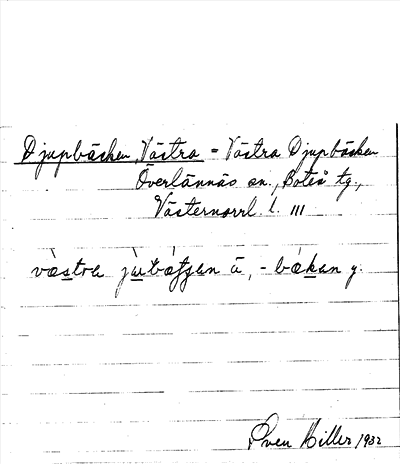 Djupbäcken, Västra = Västra Djupbäcken
Överlännäs sn., Boteå tg.,
Västernorrl. l. III
væ̀stra jùbǽtʃen ä, -bækan y.
Sven Hiller 1932